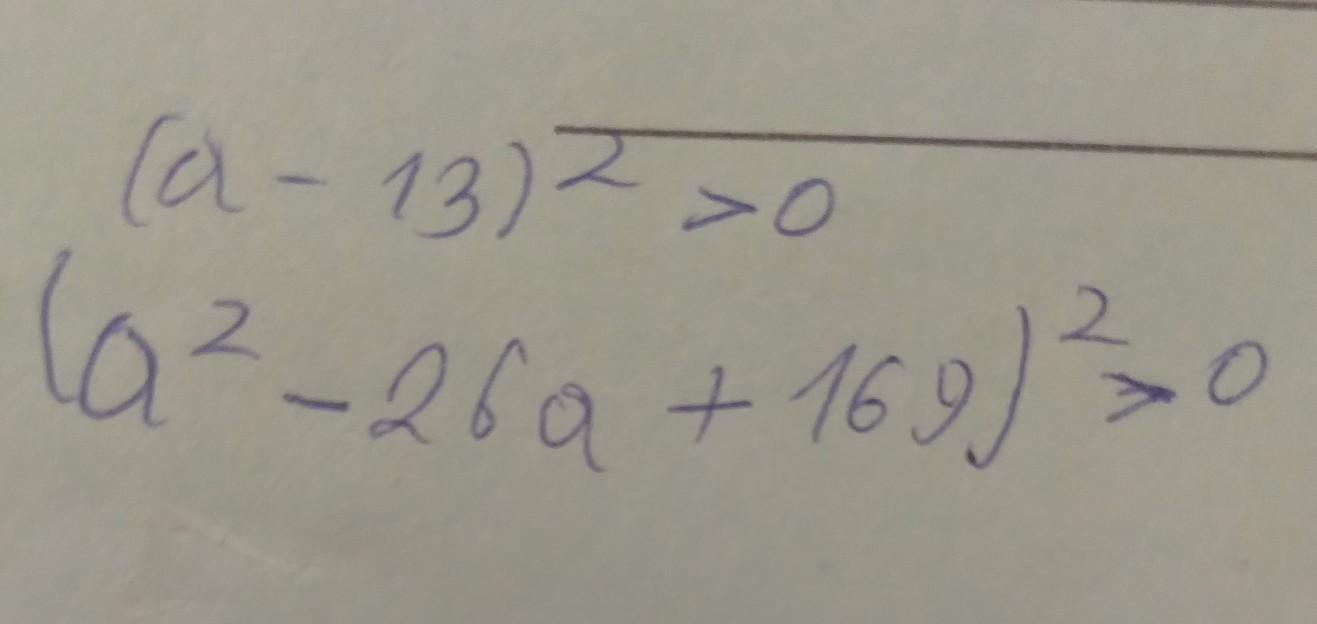 (a - 13)² > 0
(a² - 26a + 169)² > 0